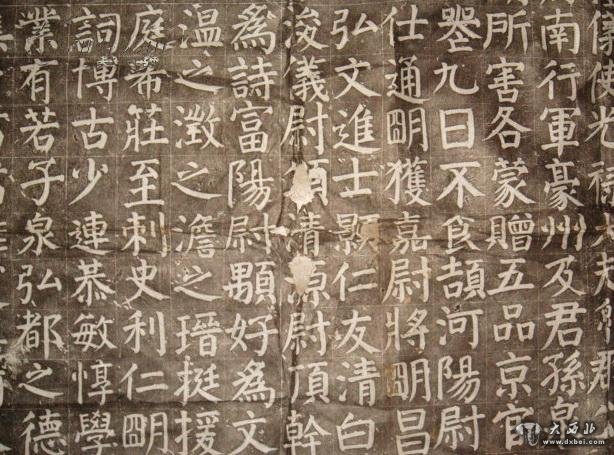 儀使光祿大夫魯郡公
南行軍豪州及君孫泉
所害各蒙贈五品京官
九日不食頡河陽尉
仕通明獲嘉尉將明昌
弘文進士顯仁友清白
浚儀尉清源尉頂幹
為詩富陽尉顒好為文
溫之澂之澹之瑨挺援
庭希莊至刺史利仁明
詞博古少連恭敏惇學
業有若子泉弘都之德
大西北
www.dxbei.com